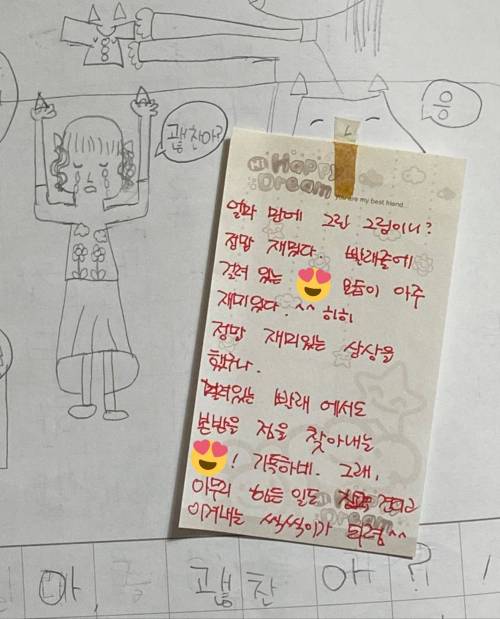 괞찬아?
응
Hi Happy
Dream
you are my best friend
얼마 만에 그린 그림이니?
정말 재밌다. 빨래줄에
걸려 있는 모습이 아주
재미있다. ^^ 히히
정말 재미있는 상상을
했구나.
걸려있는 빨래 에서도
본받을 점을 찾아내는
! 기특하네. 그래,
아무리 힘든 일도 견디고
이겨내는 씩씩이가 되렴^^
Happy
Dream
아, 괞찬아?